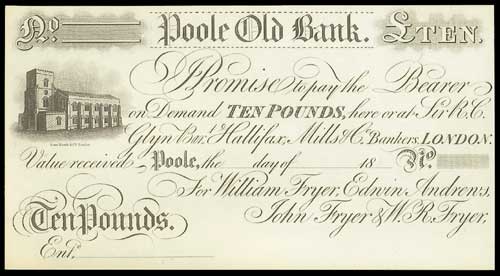 No. Poole Old Bank. £TEN.
I Promise to pay the Bearer
on Demand TEN POUNDS, here or at Sir R. C.
Glyn Bar.t Hallifax, Mills & Co. Bankers, LONDON.
Value received Poole, the day of 18 No.
For William Fryer, Edwin Andrews,
John Fryer & W. R. Fryer,
Ten Pounds.
Ent.